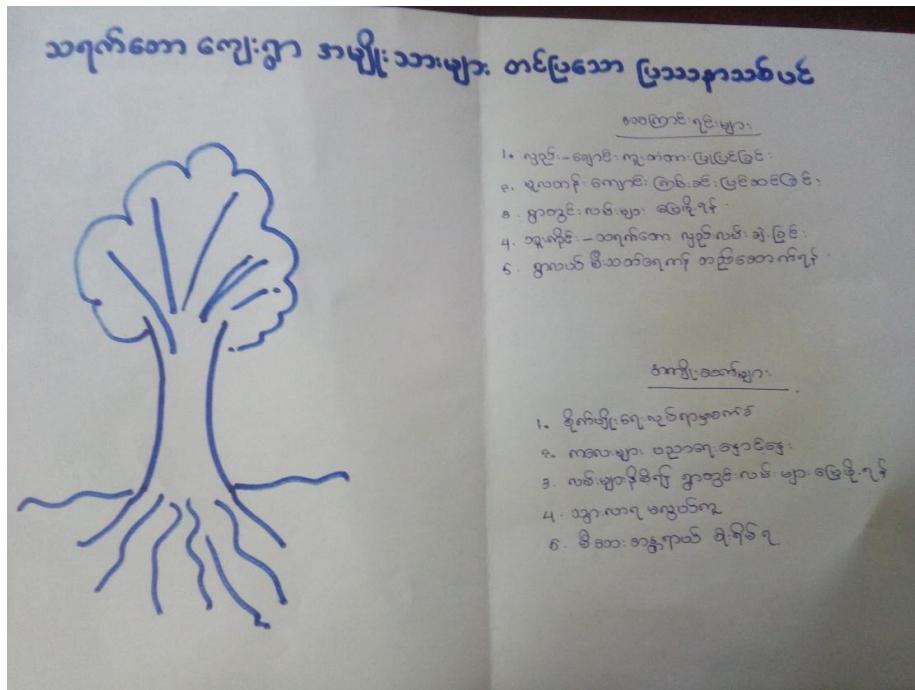 သရက်တော ကျေးရွာ အမျိုးသားများ တင်ပြသော ပြဿနာသစ်ပင်
အကြောင်းရင်းများ
၁. လှည်း-ချောင်း ကူးတံတားပြုပြင်ခြင်း
၂. မူလတန်း ကျောင်း ကြမ်းခင်း ပြင်ဆင်ခြင်း
၃. ရွာတွင်းလမ်းများ မြေဖို့ရန်
၄. သူ့ကိုင်း-သရက်တော လှည်းလမ်း ချဲ့ခြင်း
၅. ရွာလယ် မီးသတ်ရေကန် တည်ဆောက်ရန်
အကျိုးဆက်များ
၁. စိုက်ပျိုးရေးလုပ်ရာမှာခက်ခဲ
၂. ကလေးများ ပညာရေးနှောင့်နှေး
၃. လမ်းများနိမ့်၍ ရွာတွင်းလမ်းများမြေဖို့ရန်
၄. သွားလာရ မလွယ်ကူ
၅. မီးဘေးအန္တရာယ် စိုးရိမ်ရ